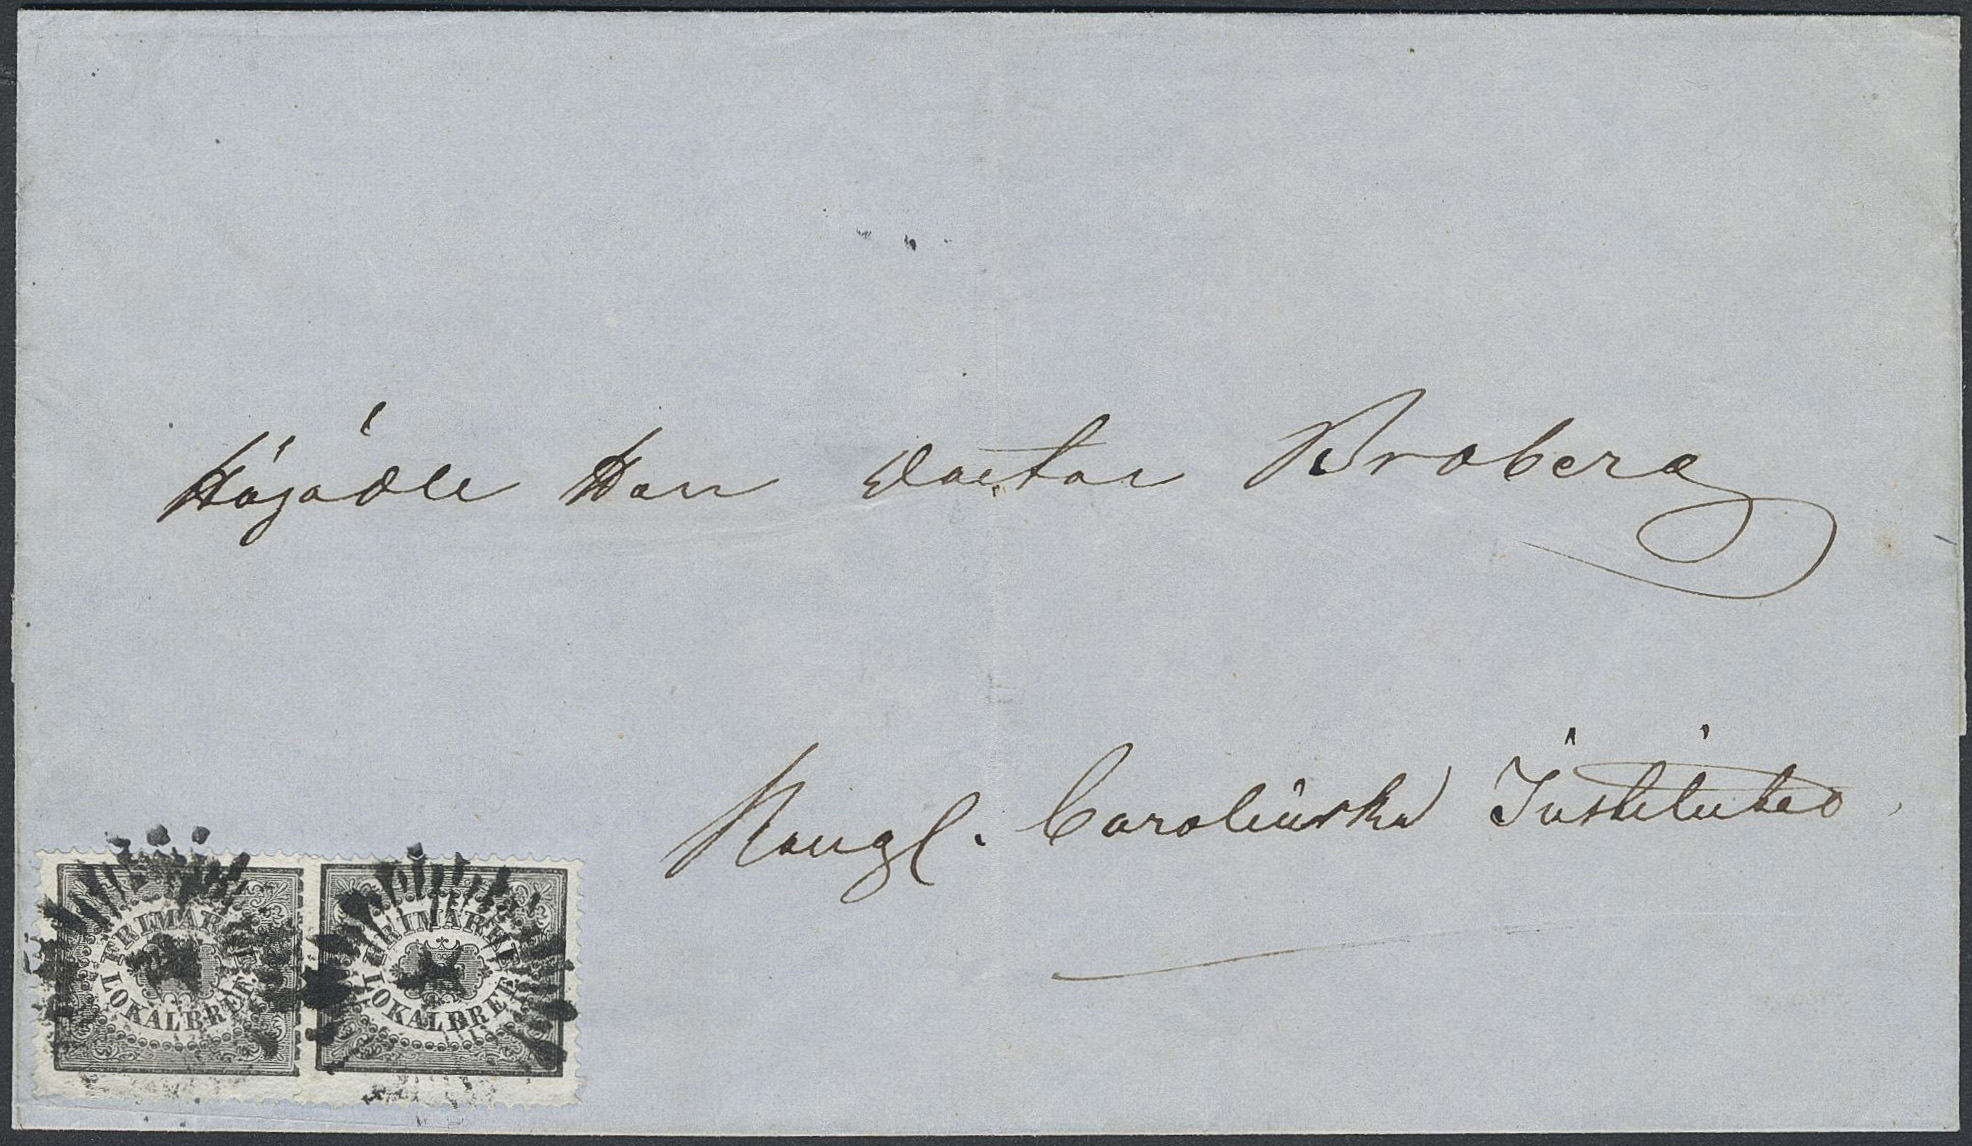 Högädle Herr Doctor Broberg
Kongl. Carolinska Institutet
FRIMÄRKE
LOKALBREF
FRIMÄRKE
LOKALBREF